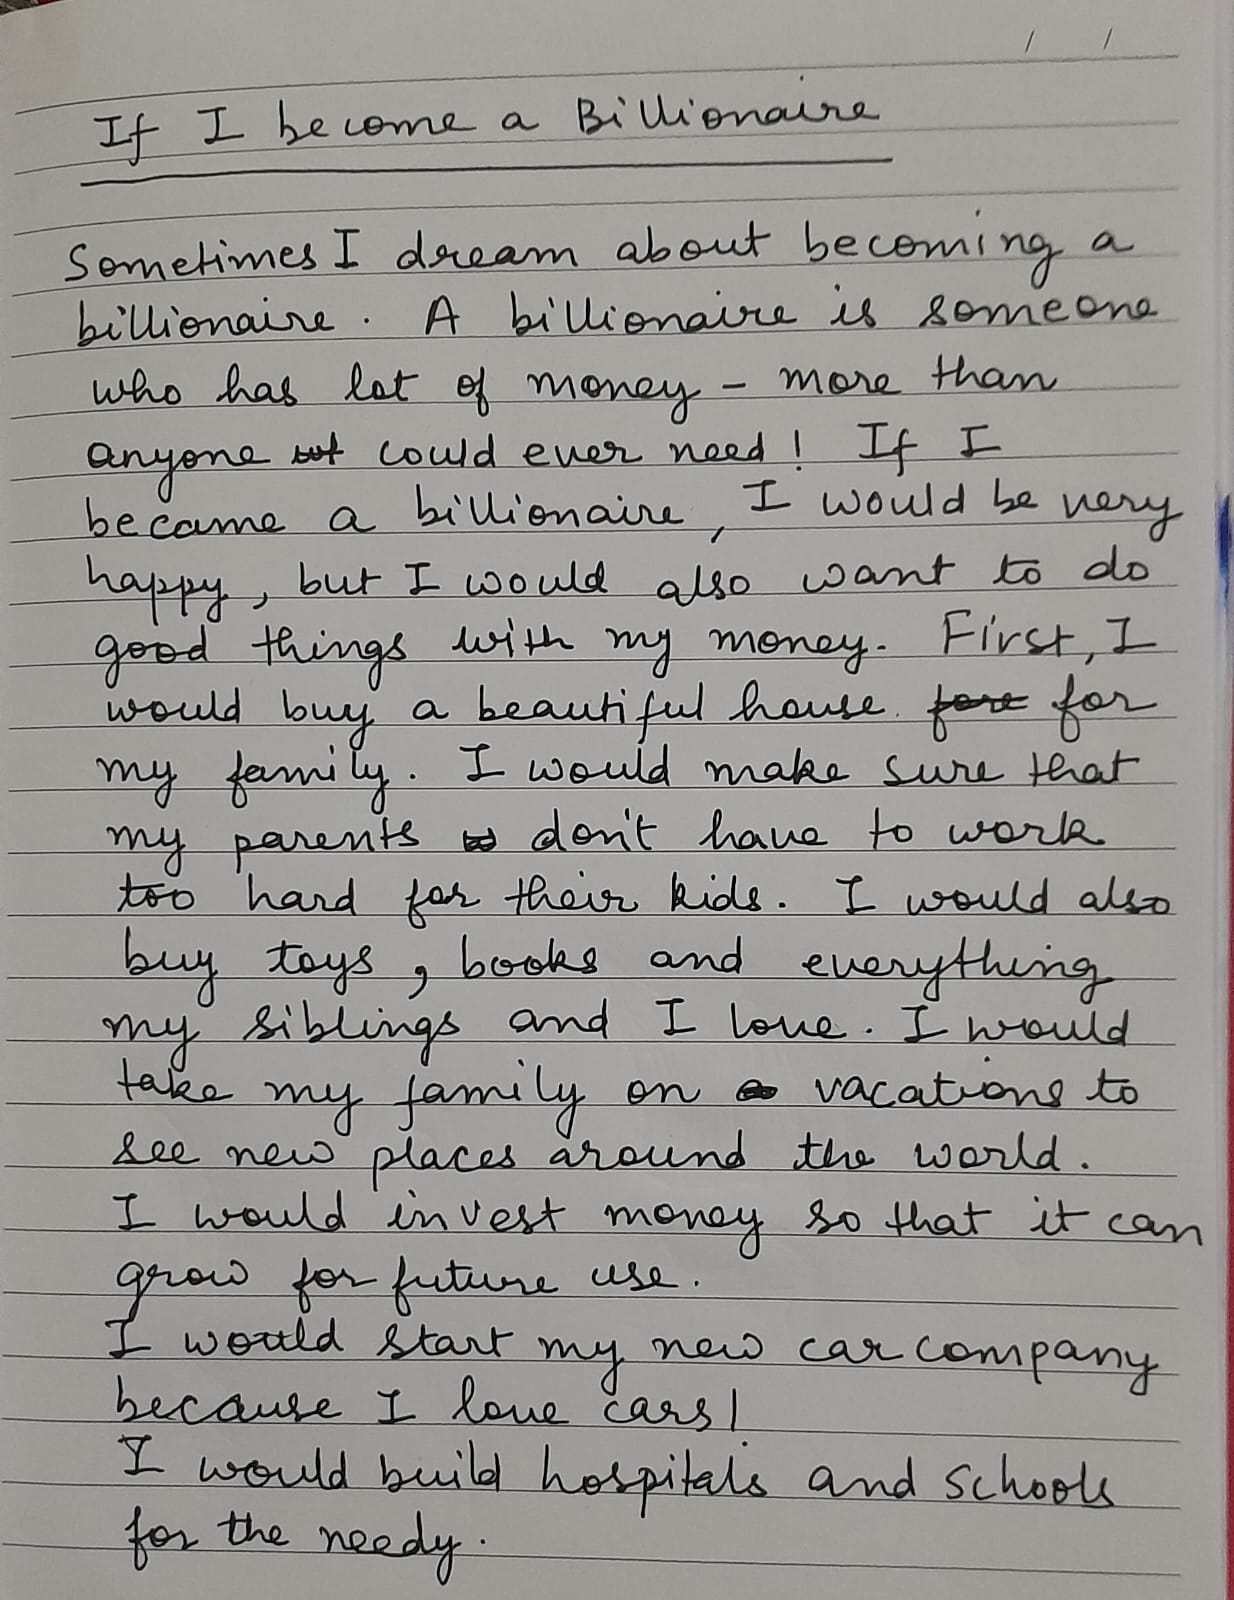 If I become a Billionaire
Sometimes I dream about becoming a
billionaire. A billionaire is someone
who has lot of money - more than
anyone could ever need! If I
became a billionaire, I would be very
happy, but I would also want to do
good things with my money. First, I
would buy a beautiful house. for
my family. I would make sure that
my parents don't have to work
too hard for their kids. I would also
buy toys, books and everything
my siblings and I love. I would
take my family on vacations to
see new places around the world.
I would invest money so that it can
grow for future use.
I would start my new car company
because I love cars!
I would build hospitals and schools
for the needy.